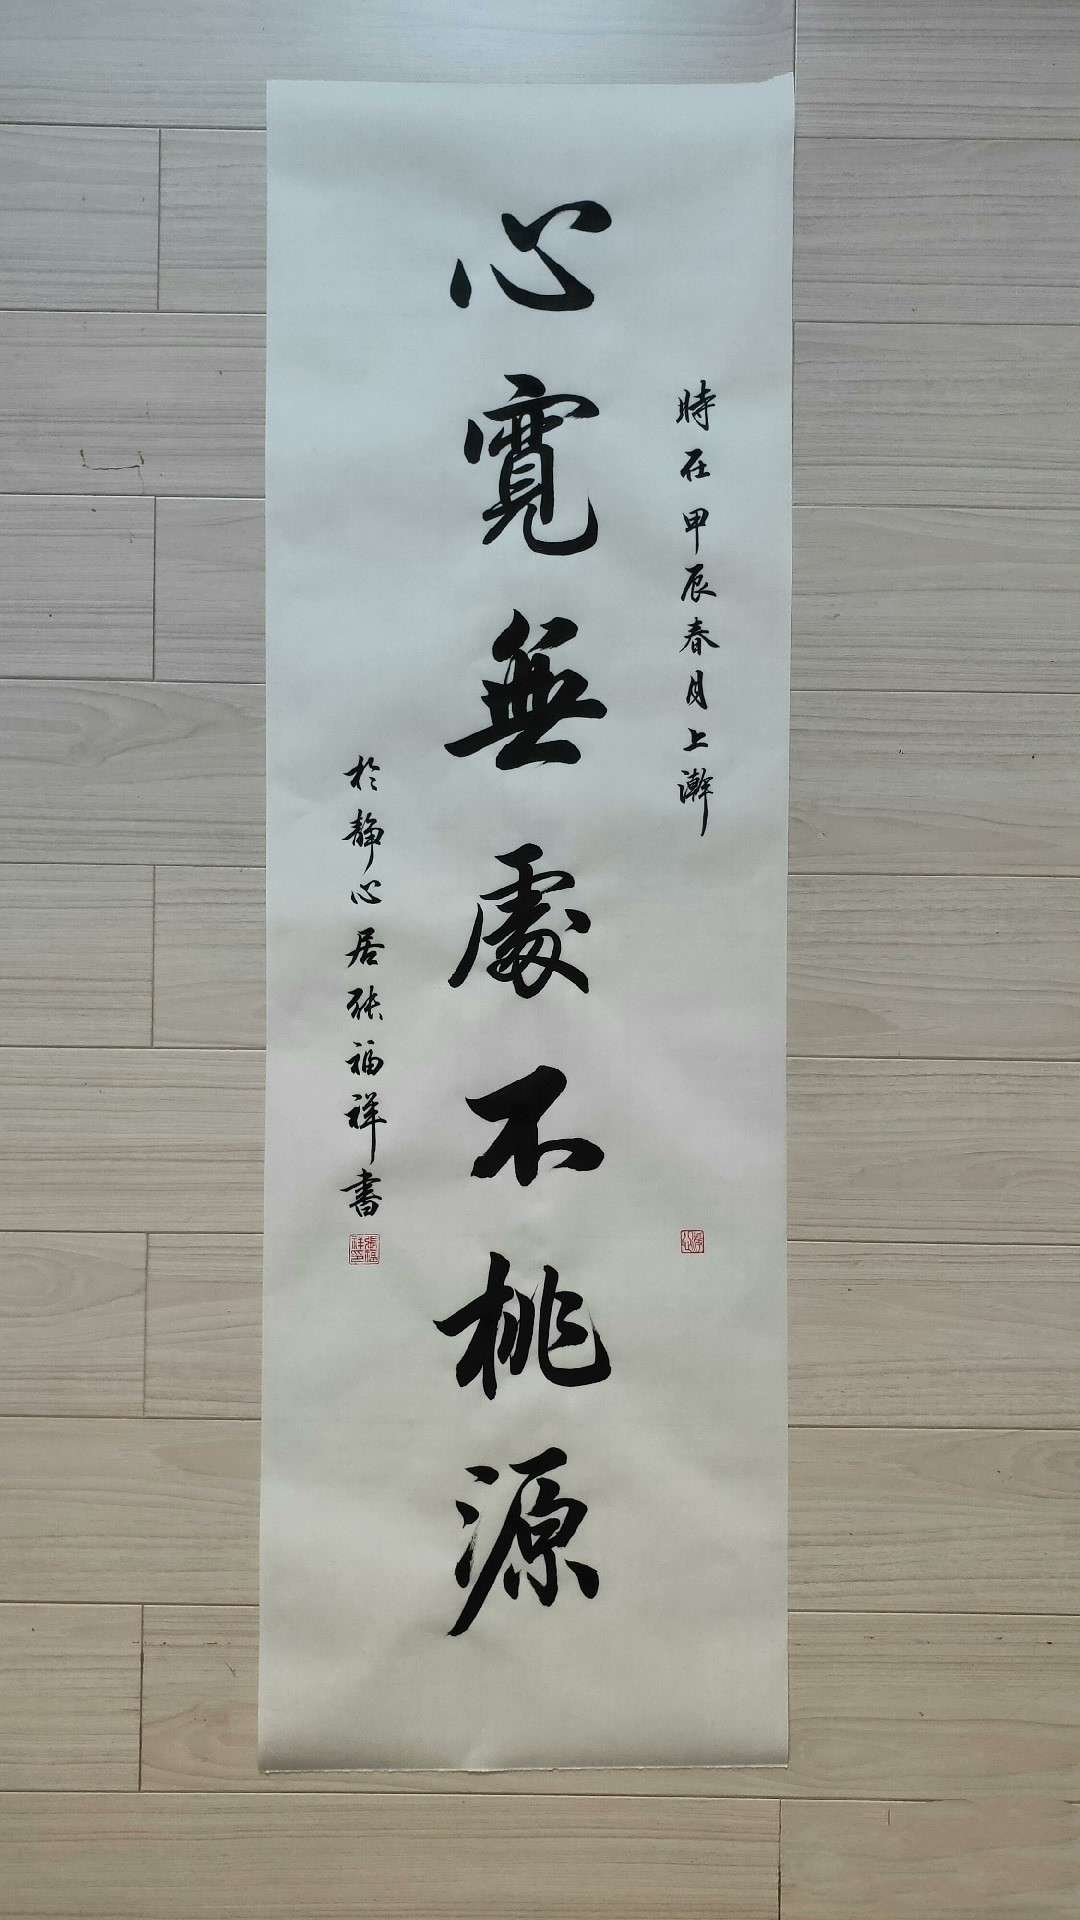 時在甲辰春月上澣
心寬無處不桃源
於靜心居張福祥書
張福祥印